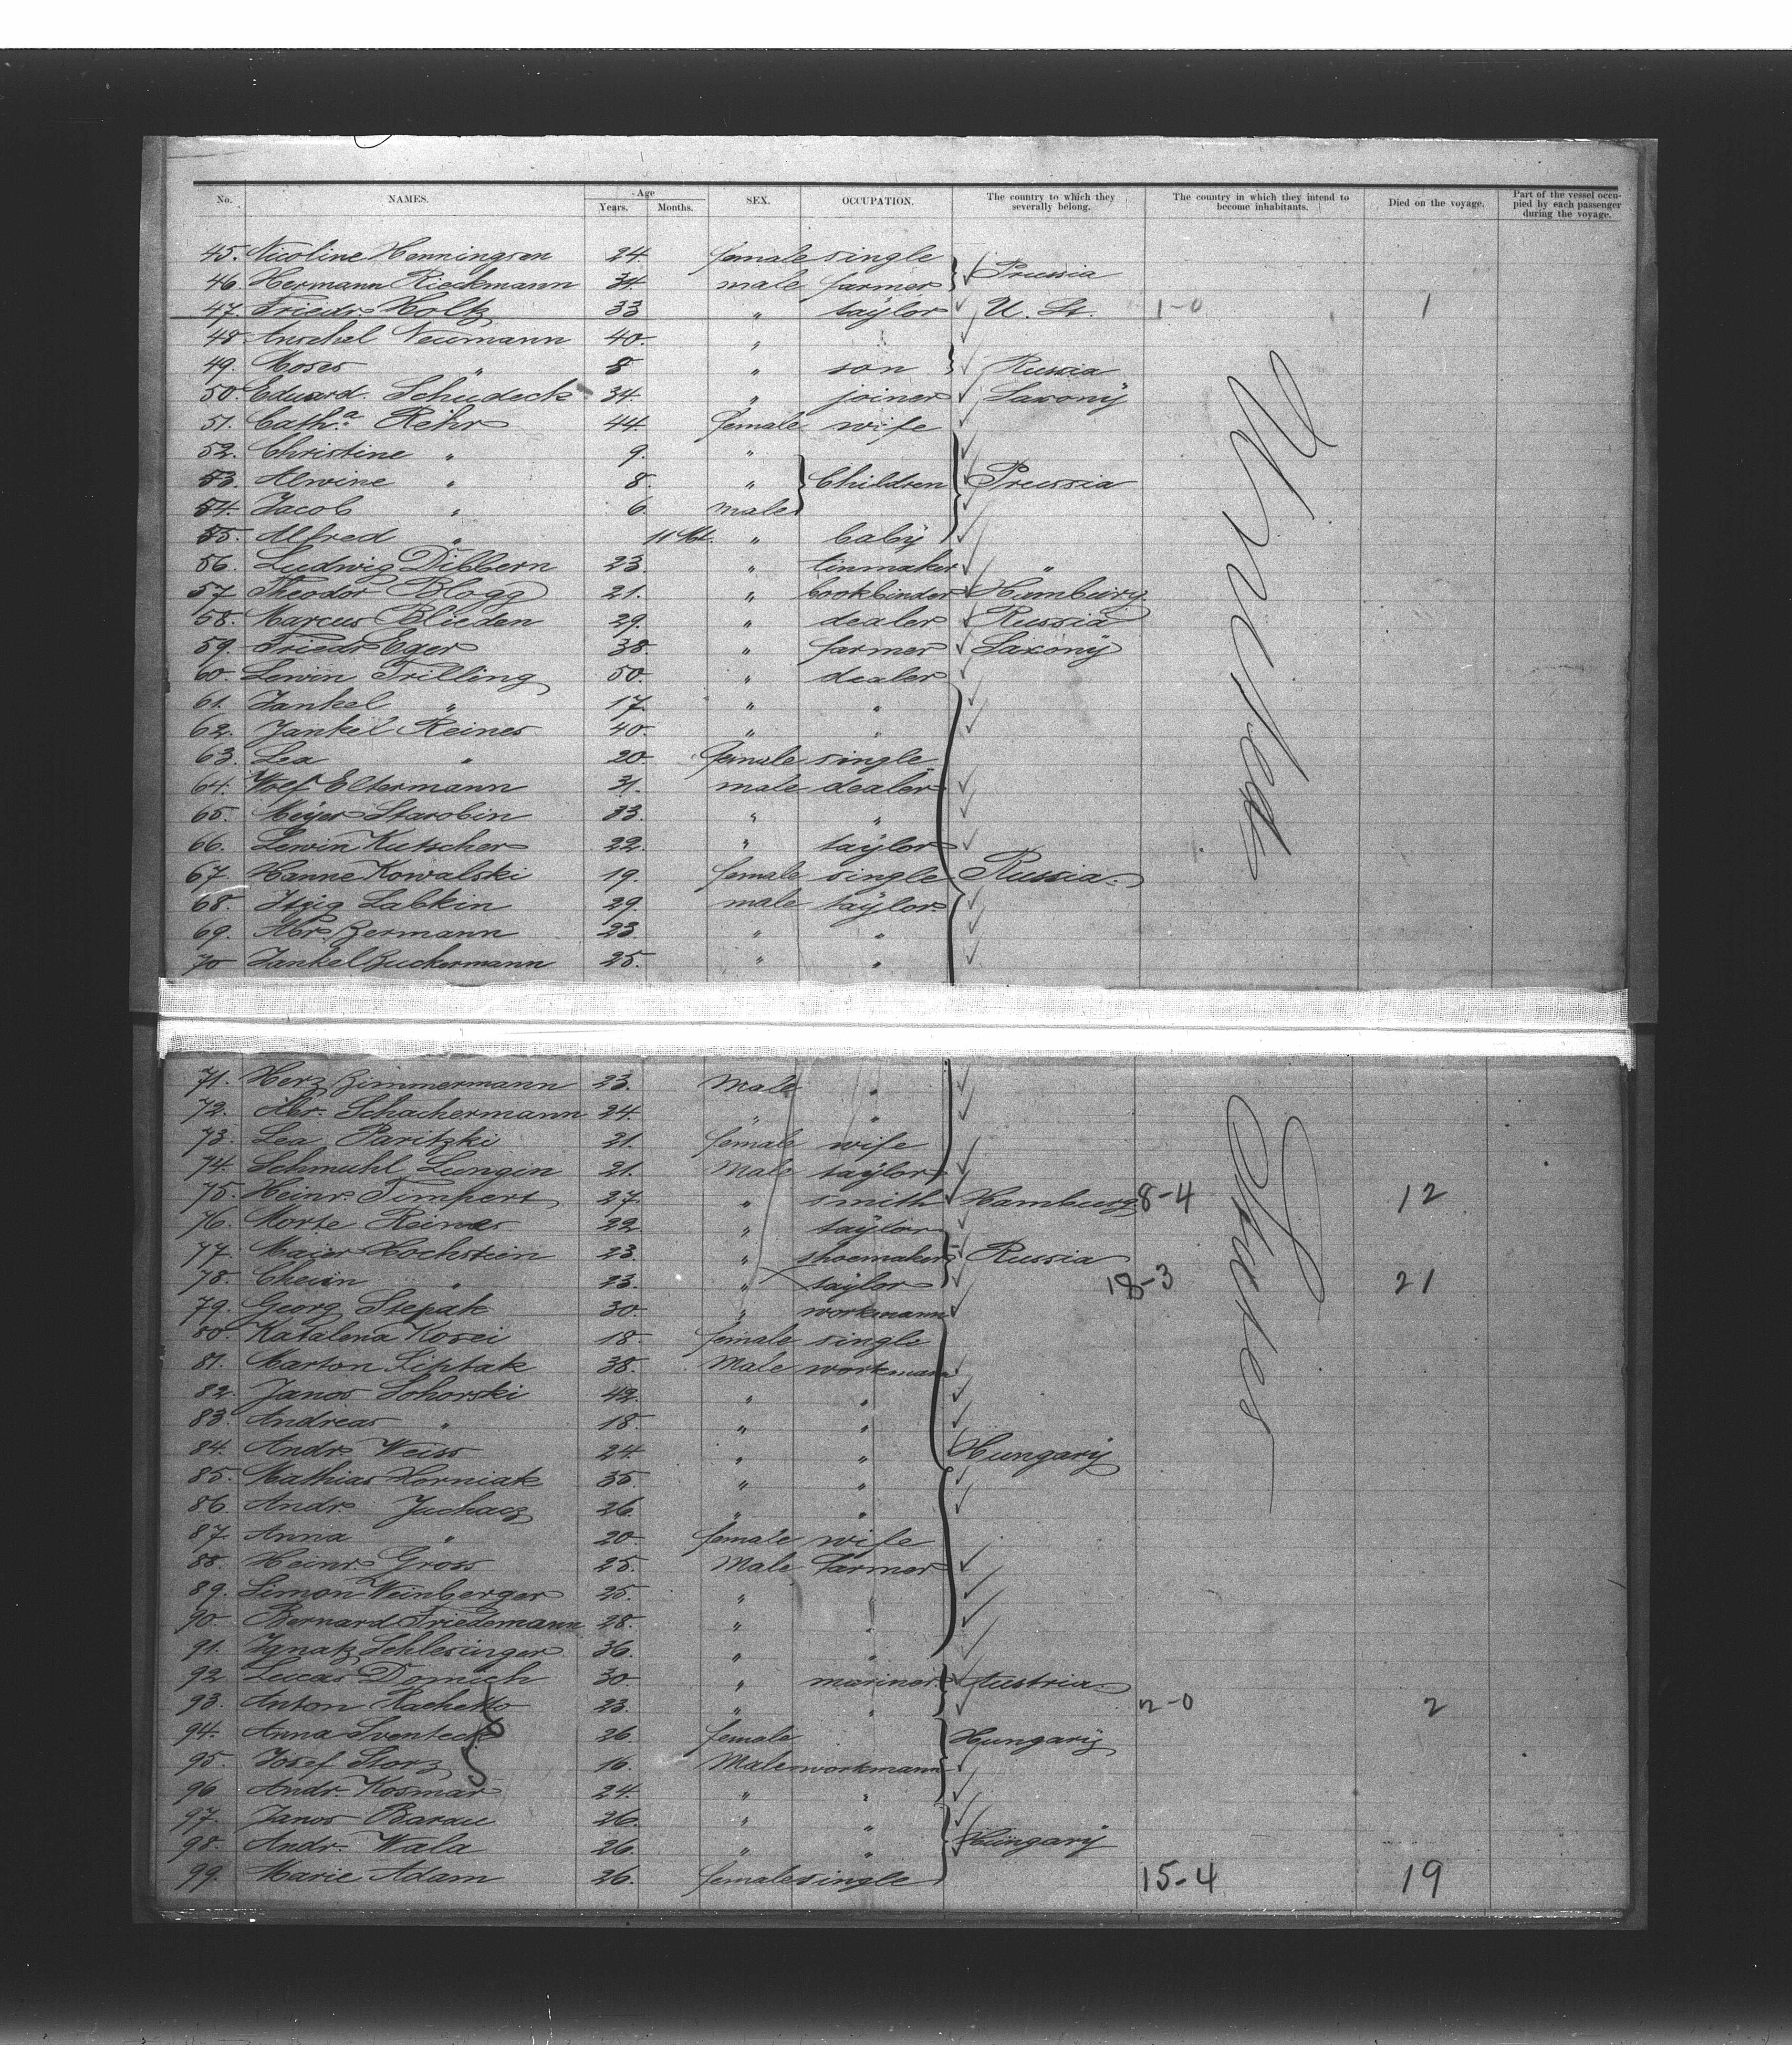 No. NAMES. Age Years. Months. SEX. OCCUPATION. The country to which they severally belong. The country in which they intend to become inhabitants. Died on the voyage. Part of the vessel occupied by each passenger during the voyage.
45. Nicoline Henningsen 24. female single
46. Hermann Rieckmann 34. male farmer Prussia
47. Friedr. Holtz 33 " taylor U. St. 1-0 1
48. Anschel Neumann 40. "
49. Moses " 8 " son Russia
50. Eduard Schudeck 34. " joiner Saxony
51. Cath.a Rehr 44. female wife
52. Christine " 9. "
53. Alwine " 8. " Children Prussia
54. Jacob " 6. male
55. Alfred " 11 Mt. " baby
56. Ludwig Dibbern 23. " tinmaker "
57. Theodor Blogg 21. " bookbinder Hamburg
58. Marcus Blieden 29. " dealer Russia
59. Friedr. Eger 38. " farmer Saxony
60. Lewin Trilling 50. " dealer
61. Jankel " 17. " "
62. Jankel Reines 40. " "
63. Lea " 20 female single
64. Wolf Eltermann 31. male dealer
65. Meyer Starobin 33. " "
66. Lewin Kutscher 22. " taylor
67. Hanne Kowalski 19. female single Russia.
68. Itzig Labkin 29. male taylor
69. Abr. Zermann 23. " "
70 Jankel Zuckermann 25. " "
United
71. Herz Zimmermann 23. Male "
72. Abr. Schachermann 24. " "
73. Lea Paritzki 21. female wife
74. Schmuhl Lungin 21. Male taylor
75. Heinr. Timpert 27. " smith Hamburg 8-4 12
76. Morte Reines 22 " taylor
77. Maier Hochstein 23. " shoemaker Russia
78. Cheim " 23. " taylor 18-3 21
79. Georg Stepak 30. " workmann
80. Katalena Kosei 18. female single
81. Marton Liptak 38. Male workmann
82. Janos Sohorski 42. " "
83. Andreas " 18. " "
84. Andr. Weiss 24. " " Hungary
85. Mathias Horniak 35. " "
86. Andr. Juchacz 26. " "
87. Anna " 20. female wife
88. Heinr. Gross 25. Male farmer
89. Simon Weinberger 25. " "
90. Bernard Friedemann 28. " "
91. Ignatz Schlesinger 36. " "
92. Lucas Domich 30. " mariner Austria
93. Anton Rachetto 23. " " 2-0 2
94. Anna Sventeck 26. female Hungary
95. Josef Storz 16. Male workmann
96 Andr. Kosmar 24. " "
97. Janos Barau 26. " "
98. Andr. Wala 26. " " Hungary
99. Marie Adam 26. female single 15-4 19
States